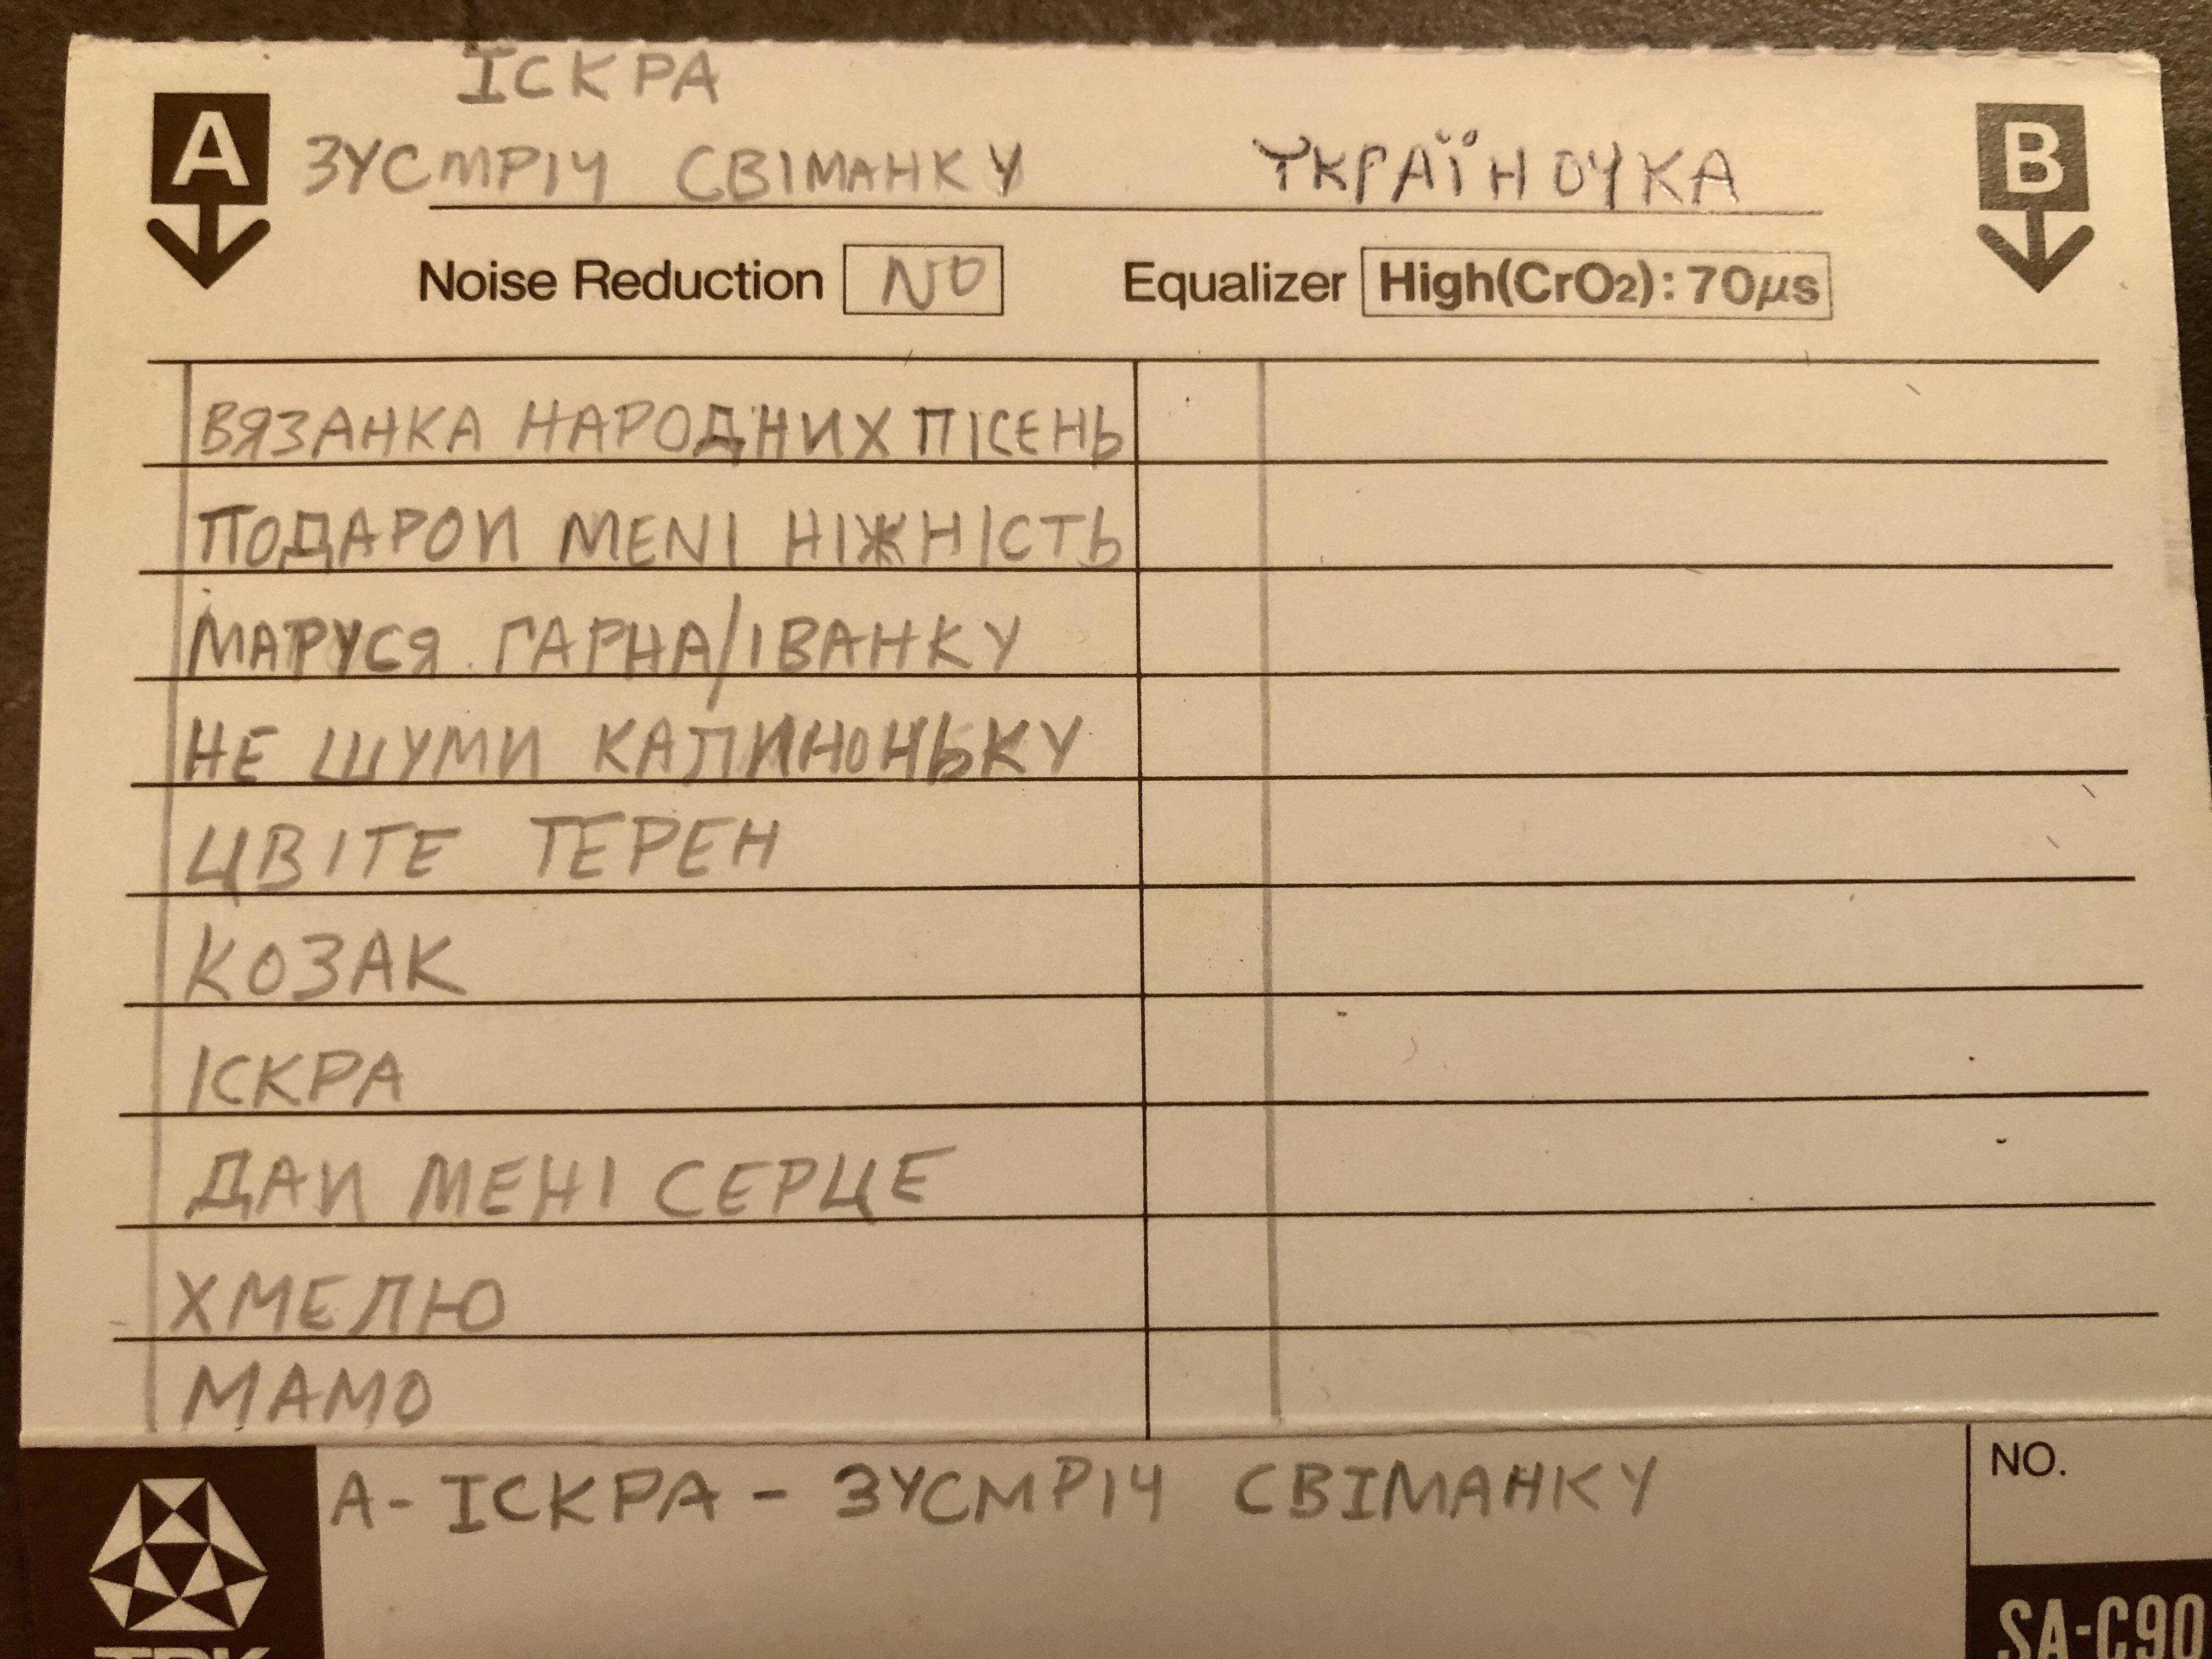 ІСКРА
A ЗУСТРІЧ СВІТАНКУ УКРАЇНОЧКА B
Noise Reduction NO Equalizer High(CrO2): 70µs
ВЯЗАНКА НАРОДНИХ ПІСЕНЬ
ПОДАРОИ МЕNІ НІЖНІСТЬ
МАРУСЯ ГАРНА/ІВАНКУ
НЕ ШУМИ КАЛИНОНЬКУ
ЦВІТЕ ТЕРЕН
КОЗАК
ІСКРА
ДАИ МЕНІ СЕРЦЕ
ХМЕЛЮ
МАМО
А-ІСКРА - ЗУСТРІЧ СВІТАНКУ
NO.
TDK
SA-C90